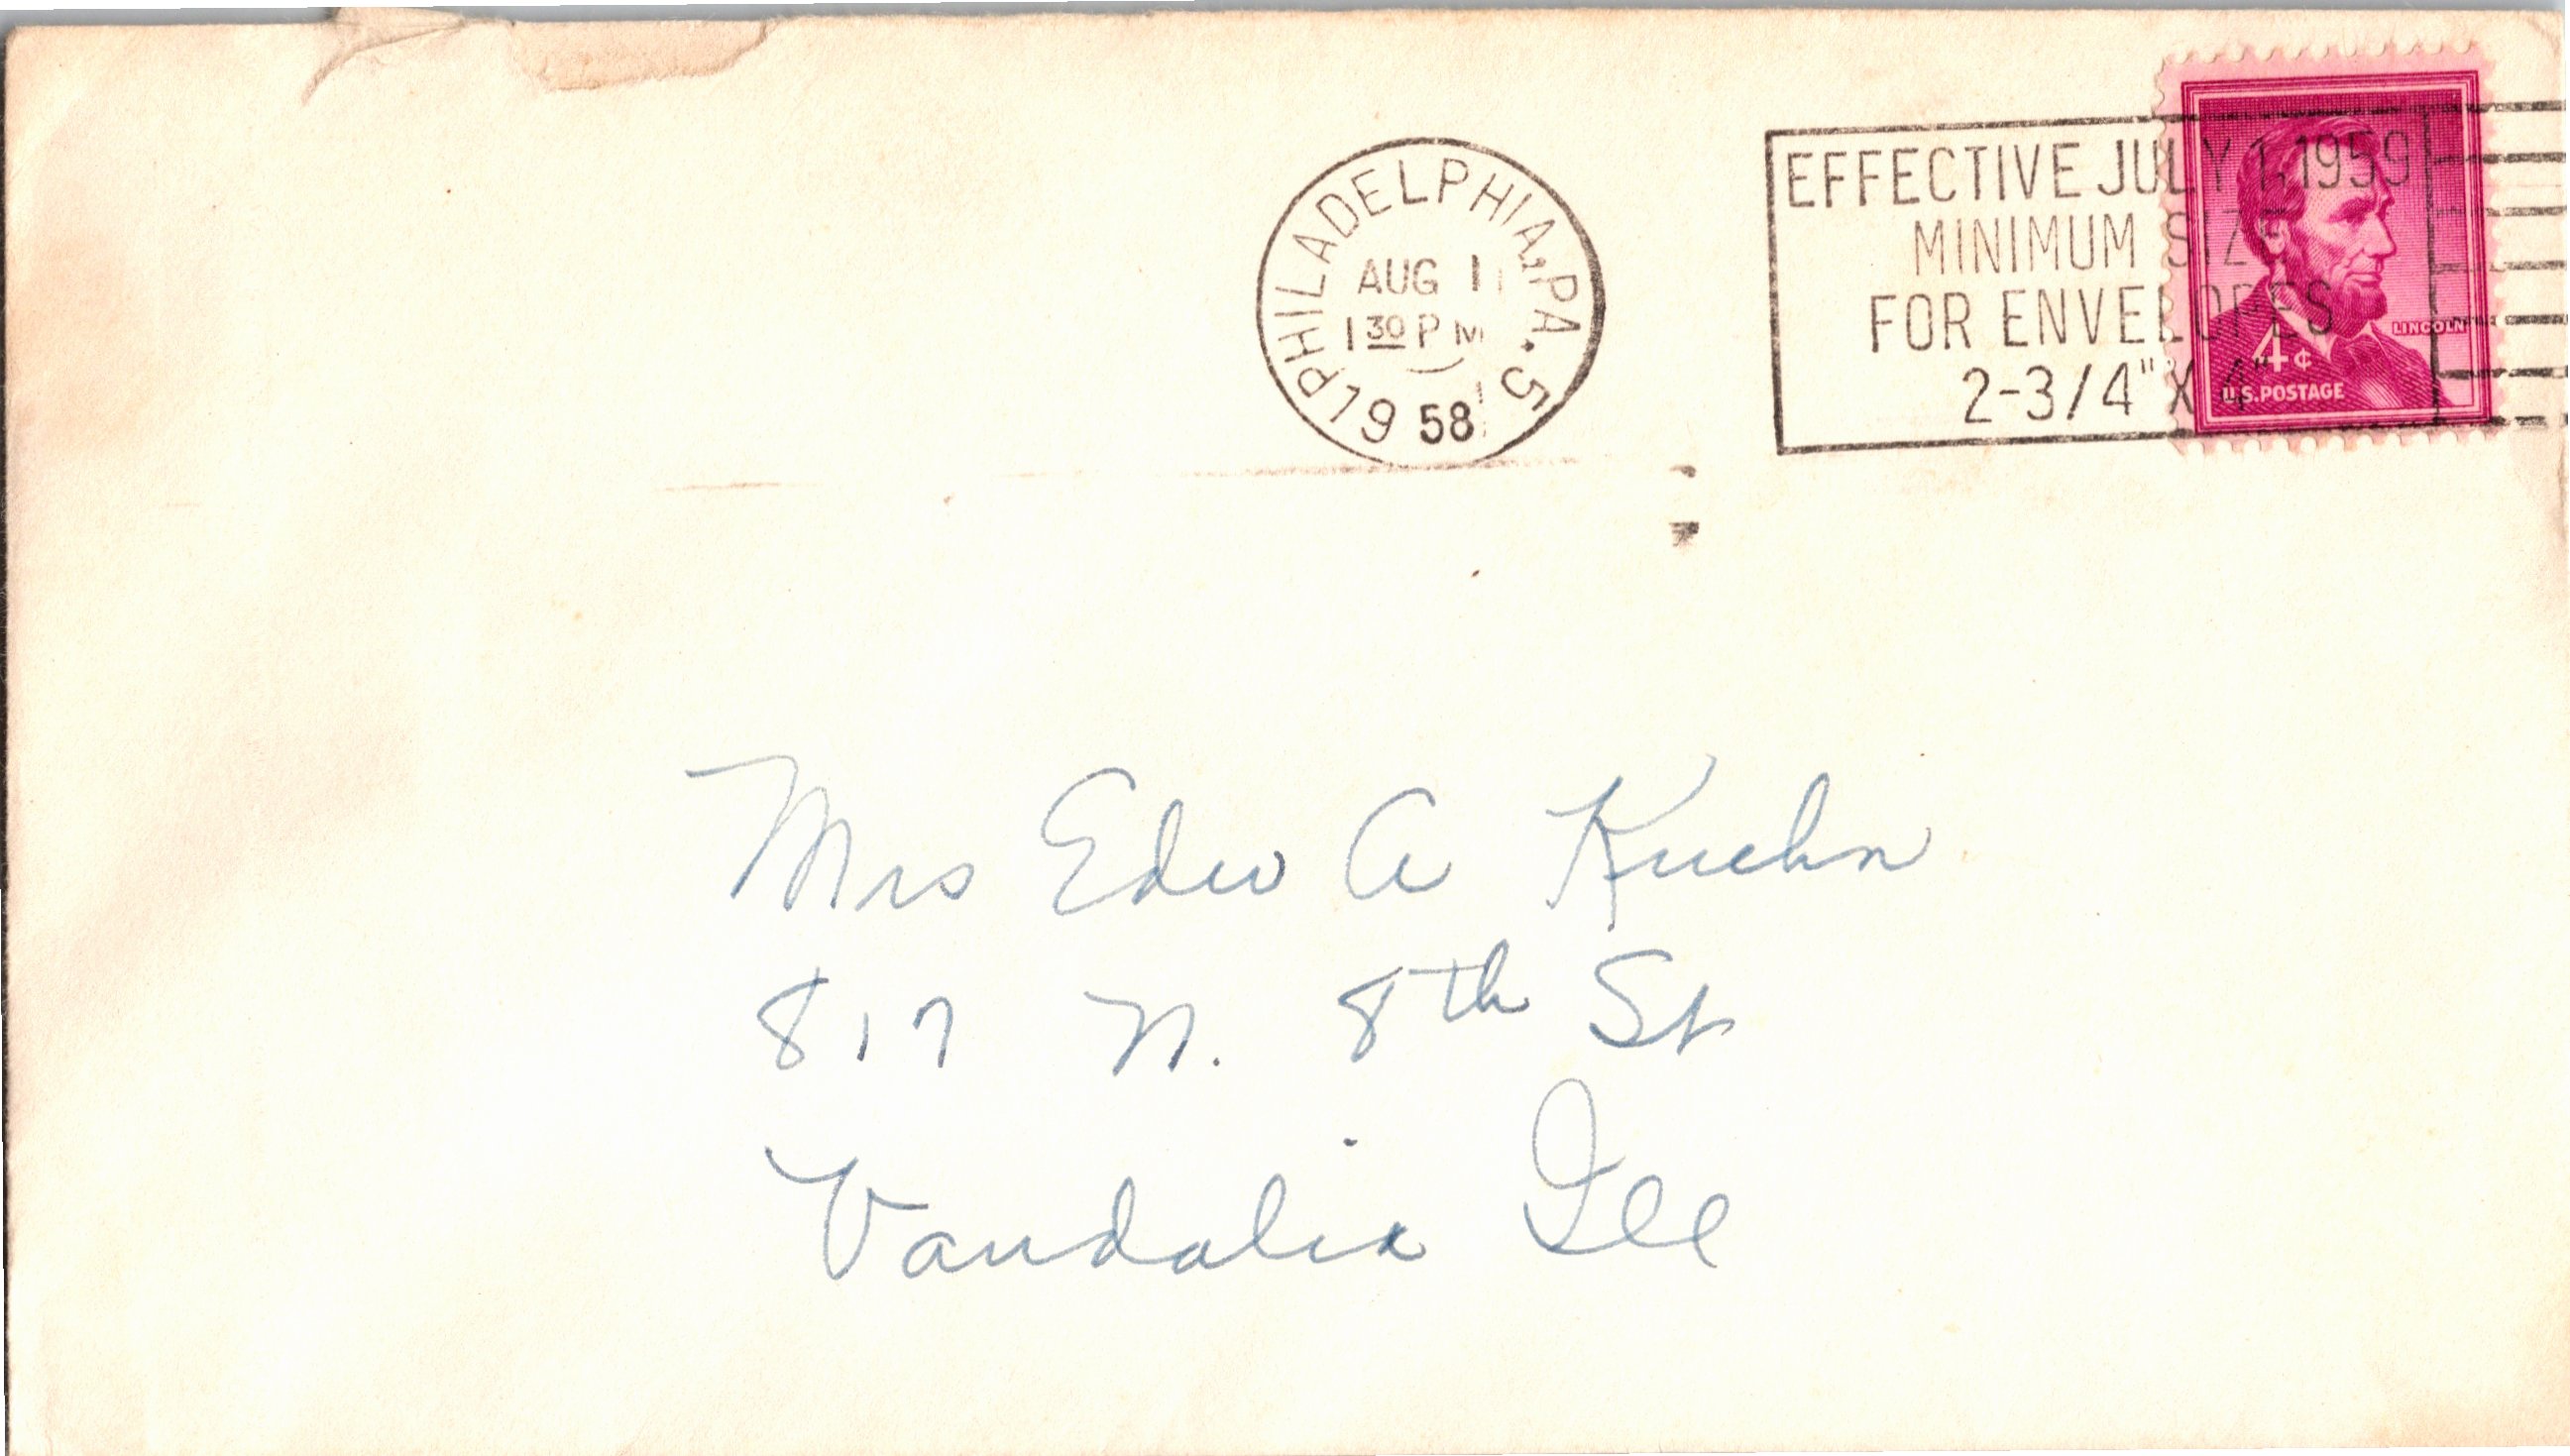 PHILADELPHIA, PA. 5
AUG 11
1 30 PM
19 58
EFFECTIVE JULY 1, 1959
MINIMUM SIZE
FOR ENVELOPES
2-3/4" X 4"
LINCOLN
4¢
U.S. POSTAGE
Mrs Edw A Kuehn
817 N. 8th St
Vandalia Ill